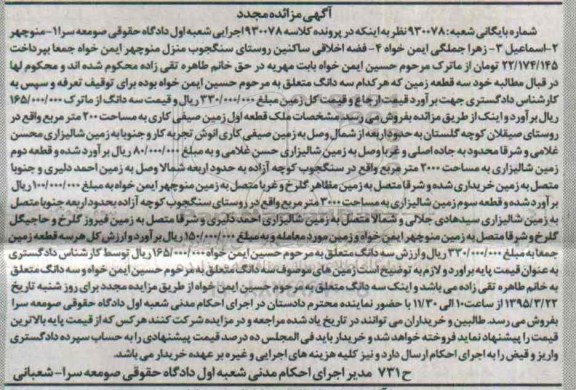 آگهی مزائده مجدد
شماره بایگانی شعبه: ۹۳۰۰۷۸ نظر به اینکه در پرونده کلاسه ۹۳۰۰۷۸ اجرایی شعبه اول دادگاه حقوقی صومعه سرا ۱- منوچهر
۲- اسماعیل ۳- زهرا جملگی ایمن خواه ۴- فضه اخلاقی ساکنین روستای سنگجوب منزل منوچهر ایمن خواه جمعا بپرداخت
۲۲/۱۷۴/۱۴۵ تومان از ماترک مرحوم حسین ایمن خواه بابت مهریه در حق خانم طاهره تقی زاده محکوم شده اند و محکوم لها
در قبال مطالبه خود سه قطعه زمین که هر کدام سه دانگ متعلق به مرحوم حسین ایمن خواه بوده برای توقیف تعرفه و سپس به
کارشناس دادگستری جهت برآورد قیمت ارجاع و قیمت کل زمین مبلغ ۳۳۰/۰۰۰/۰۰۰ ریال و قیمت سه دانگ از ماترک ۱۶۵/۰۰۰/۰۰۰
ریال برآورد و اینک از طریق مزائده بفروش می رسد. مشخصات ملک قطعه اول زمین صیفی کاری به مساحت ۲۰۰ متر مربع واقع در
روستای صیقلان کوچه گلستان به حدود اربعه از شمال وصل به زمین صیفی کاری انوش تجربه کار و جنوبا به زمین شالیزاری محسن
غلامی و شرقا محدود به جاده اصلی و غربا وصل به زمین شالیزاری حسن غلامی و به مبلغ ۸۰/۰۰۰/۰۰۰ ریال برآورد شده و قطعه دوم
زمین شالیزاری به مساحت ۲۰۰۰ متر مربع واقع در سنگجوب کوچه آزاده به حدود اربعه شمالا وصل به زمین احمد دلیری و جنوبا
متصل به زمین خریداری شده و شرقا متصل به زمین مظاهر گلرخ و غربا متصل به زمین منوچهر ایمن خواه به مبلغ ۱۰۰/۰۰۰/۰۰۰ ریال
برآورد شده و قطعه سوم زمین شالیزاری به مساحت ۳۰۰۰ متر مربع واقع در روستای سنگجوب کوچه آزاده بحدود اربعه جنوبا متصل
به زمین شالیزاری سیدهادی جلالی و شمالا متصل به زمین شالیزاری احمد دلیری و شرقا متصل به زمین فیروز گلرخ و حاجی گل
گلرخ و شرقا متصل به زمین منوچهر ایمن خواه و زمین مورد معامله و به مبلغ ۱۵۰/۰۰۰/۰۰۰ ریال برآورد و ارزش کل هر سه قطعه زمین
جمعا به مبلغ ۳۳۰/۰۰۰/۰۰۰ ریال و ارزش سه دانگ متعلق به مرحوم حسین ایمن خواه ۱۶۵/۰۰۰/۰۰۰ ریال توسط کارشناس دادگستری
به عنوان قیمت پایه برآورد و لازم به توضیح است زمین های موصوف سه دانگ متعلق به مرحوم حسین ایمن خواه و سه دانگ متعلق
به خانم طاهره تقی زاده می باشد و اینک سه دانگ متعلق به مرحوم حسین ایمن خواه از طریق مزایده مجدد برای روز شنبه تاریخ
۱۳۹۵/۳/۲۲ از ساعت ۱۰ الی ۱۱/۳۰ با حضور نماینده محترم دادستان در اجرای احکام مدنی شعبه اول دادگاه حقوقی صومعه سرا
بفروش می رسد. طالبین و خریداران می توانند در تاریخ یاد شده مراجعه و در مزایده شرکت کنند هر کس که از قیمت پایه بالاترین
قیمت را پیشنهاد نماید فروخته خواهد شد و خریدار باید فی المجلس ده درصد قیمت پیشنهادی را به حساب سپرده دادگستری
واریز و فیش را به اجرای احکام ارسال دارد و نیز کلیه هزینه های اجرایی و غیره بر عهده خریدار می باشد.
ح ۷۳۱ مدیر اجرای احکام مدنی شعبه اول دادگاه حقوقی صومعه سرا- شعبانی